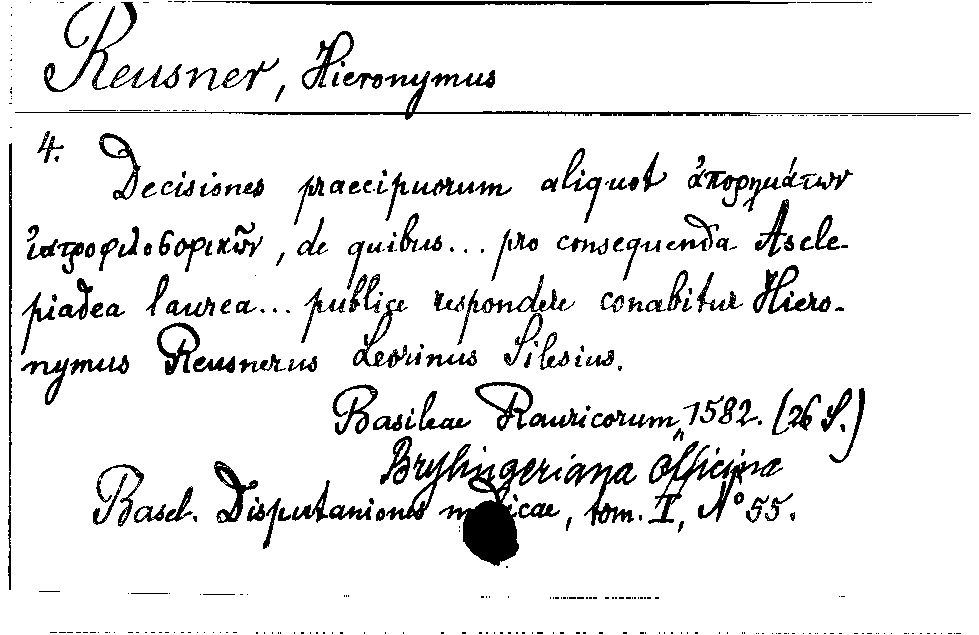 Reusner, Hieronymus
4. Decisiones praecipuorum aliquot ἀπορημάτων
ἰατροφιλοσοφικῶν, de quibus... pro consequenda Ascle-
piadea laurea... publice respondere conabitur Hiero-
nymus Reusnerus Leorinus Silesius.
Basileae Rauricorum, 1582. (26 S.)
Brylingeriana officina
Basel. Disputationes medicae, tom. II, No 55.